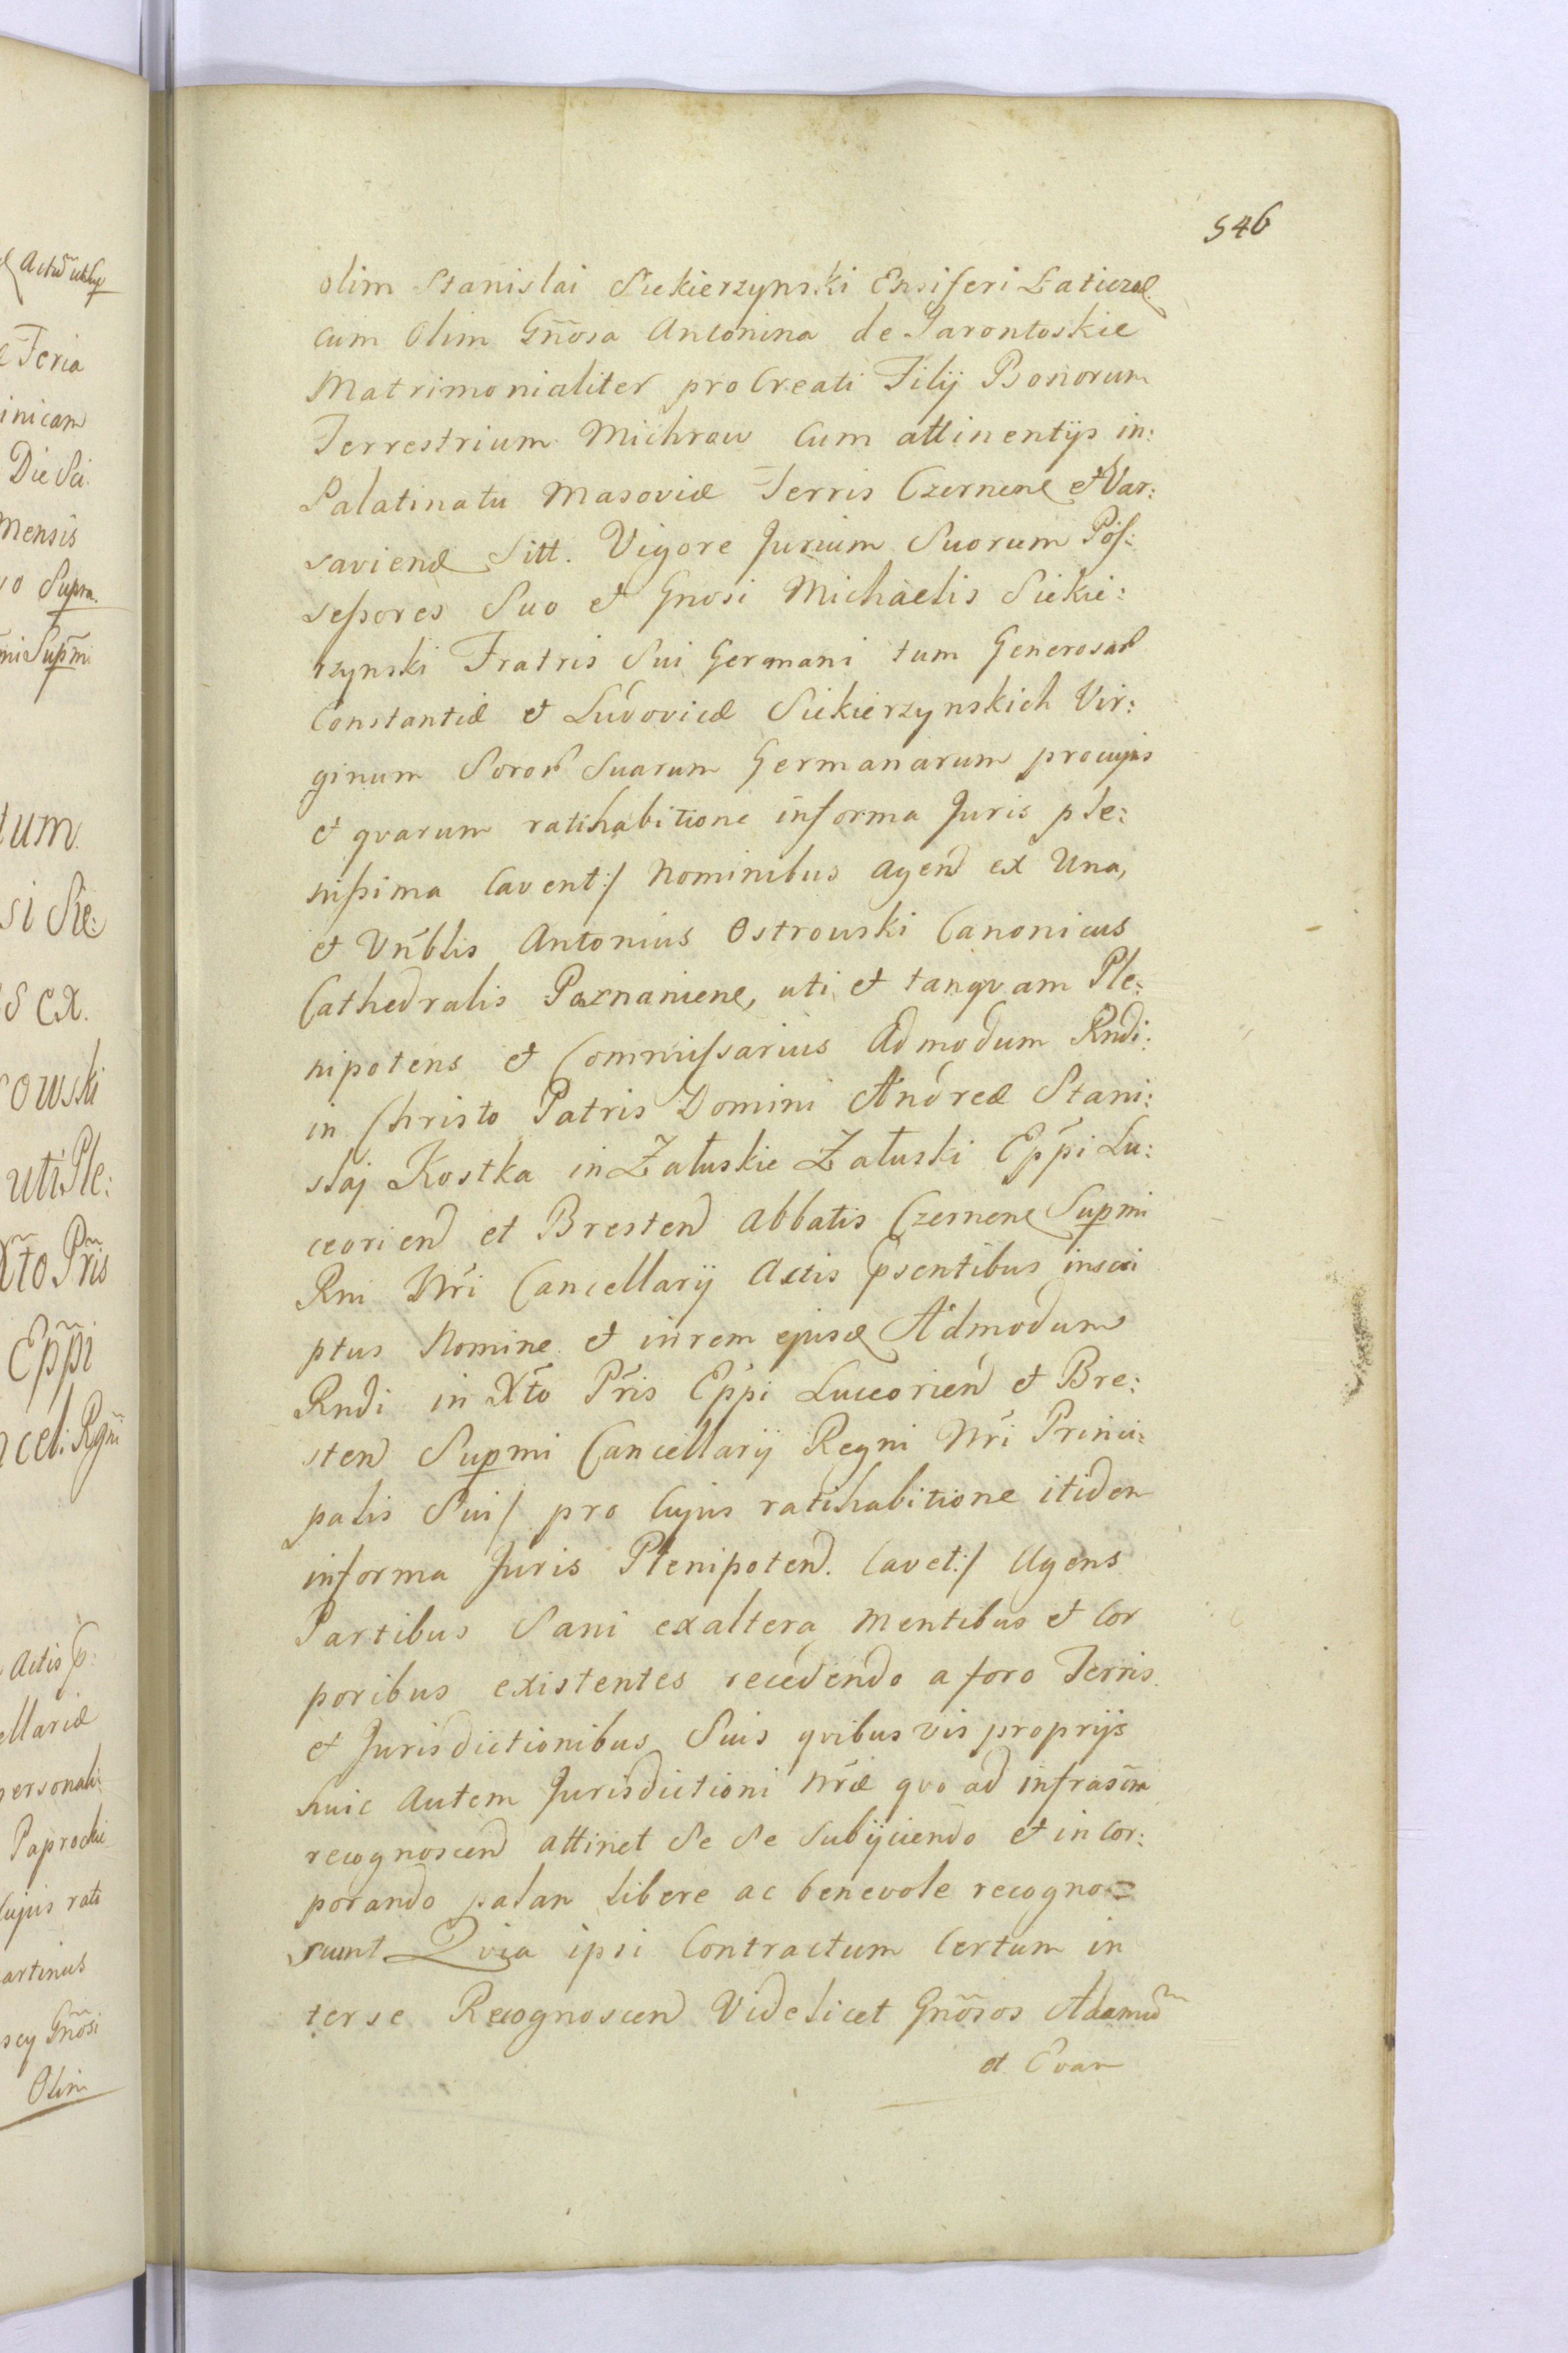 546
olim Stanislai Siekierzynski Ensiferi Laticzae
cum Olim Gñosa Antonina de Jarontoskie
Matrimonialiter pro Creati Filij Bonorum
Terrestrium Michrow Cum attinentijs in:
Palatinatu Masoviæ Terris Czernene et Var:
saviend Sitt. Vigore Jurium Suorum Pos:
sessores Suo et Gnosi Michaelis Siekie:
rzynski Fratris Sui Germani tum Generosar
Constantiæ et Ludovicæ Siekierzynskich Vir:
ginum Soror Suarum Germanarum pro cujus
et quarum ratihabitione informa Juris ple:
nissima Cavent:/ Nominibus agend ex Una,
et Vnblis Antonius Ostrowski Canonicus
Cathedralis Poznaniene, uti et tanqvam Ple:
nipotens et Commissarius Admodum Rndi:
in Christo Patris Domini Andreæ Stani:
slaj Kostka in Załuskie Załuski Eppi Lu:
ceoriend et Brestend Abbatis Czernene Supmi
Rni Nri Cancellarij Actis psentibus inscri
ptus Nomine et inrem ejusd Admodum
Rndi in Xto Pris Eppi Luceoriend et Bre:
stend Supmi Cancellarij Regni Nri Princi:
palis Sui/ pro Cujus ratihabitione itidem
informa Juris Plenipotend. Cavet:/ Agens
Partibus Sani exaltera Mentibus et Cor
poribus existentes recedendo a foro Terris
et Jurisdictionibus Suis qvibus vis proprijs
huic Autem Jurisdictioni Nræ qvo ad infrasma
recognoscend attinet Se Se Subijciendo et in Cor:
porando palam libere ac benevole recogno=
scunt Qvia ipsi Contractum Certum in
ter se Recognoscend Videlicet Gñosos Adamũ
et Evam